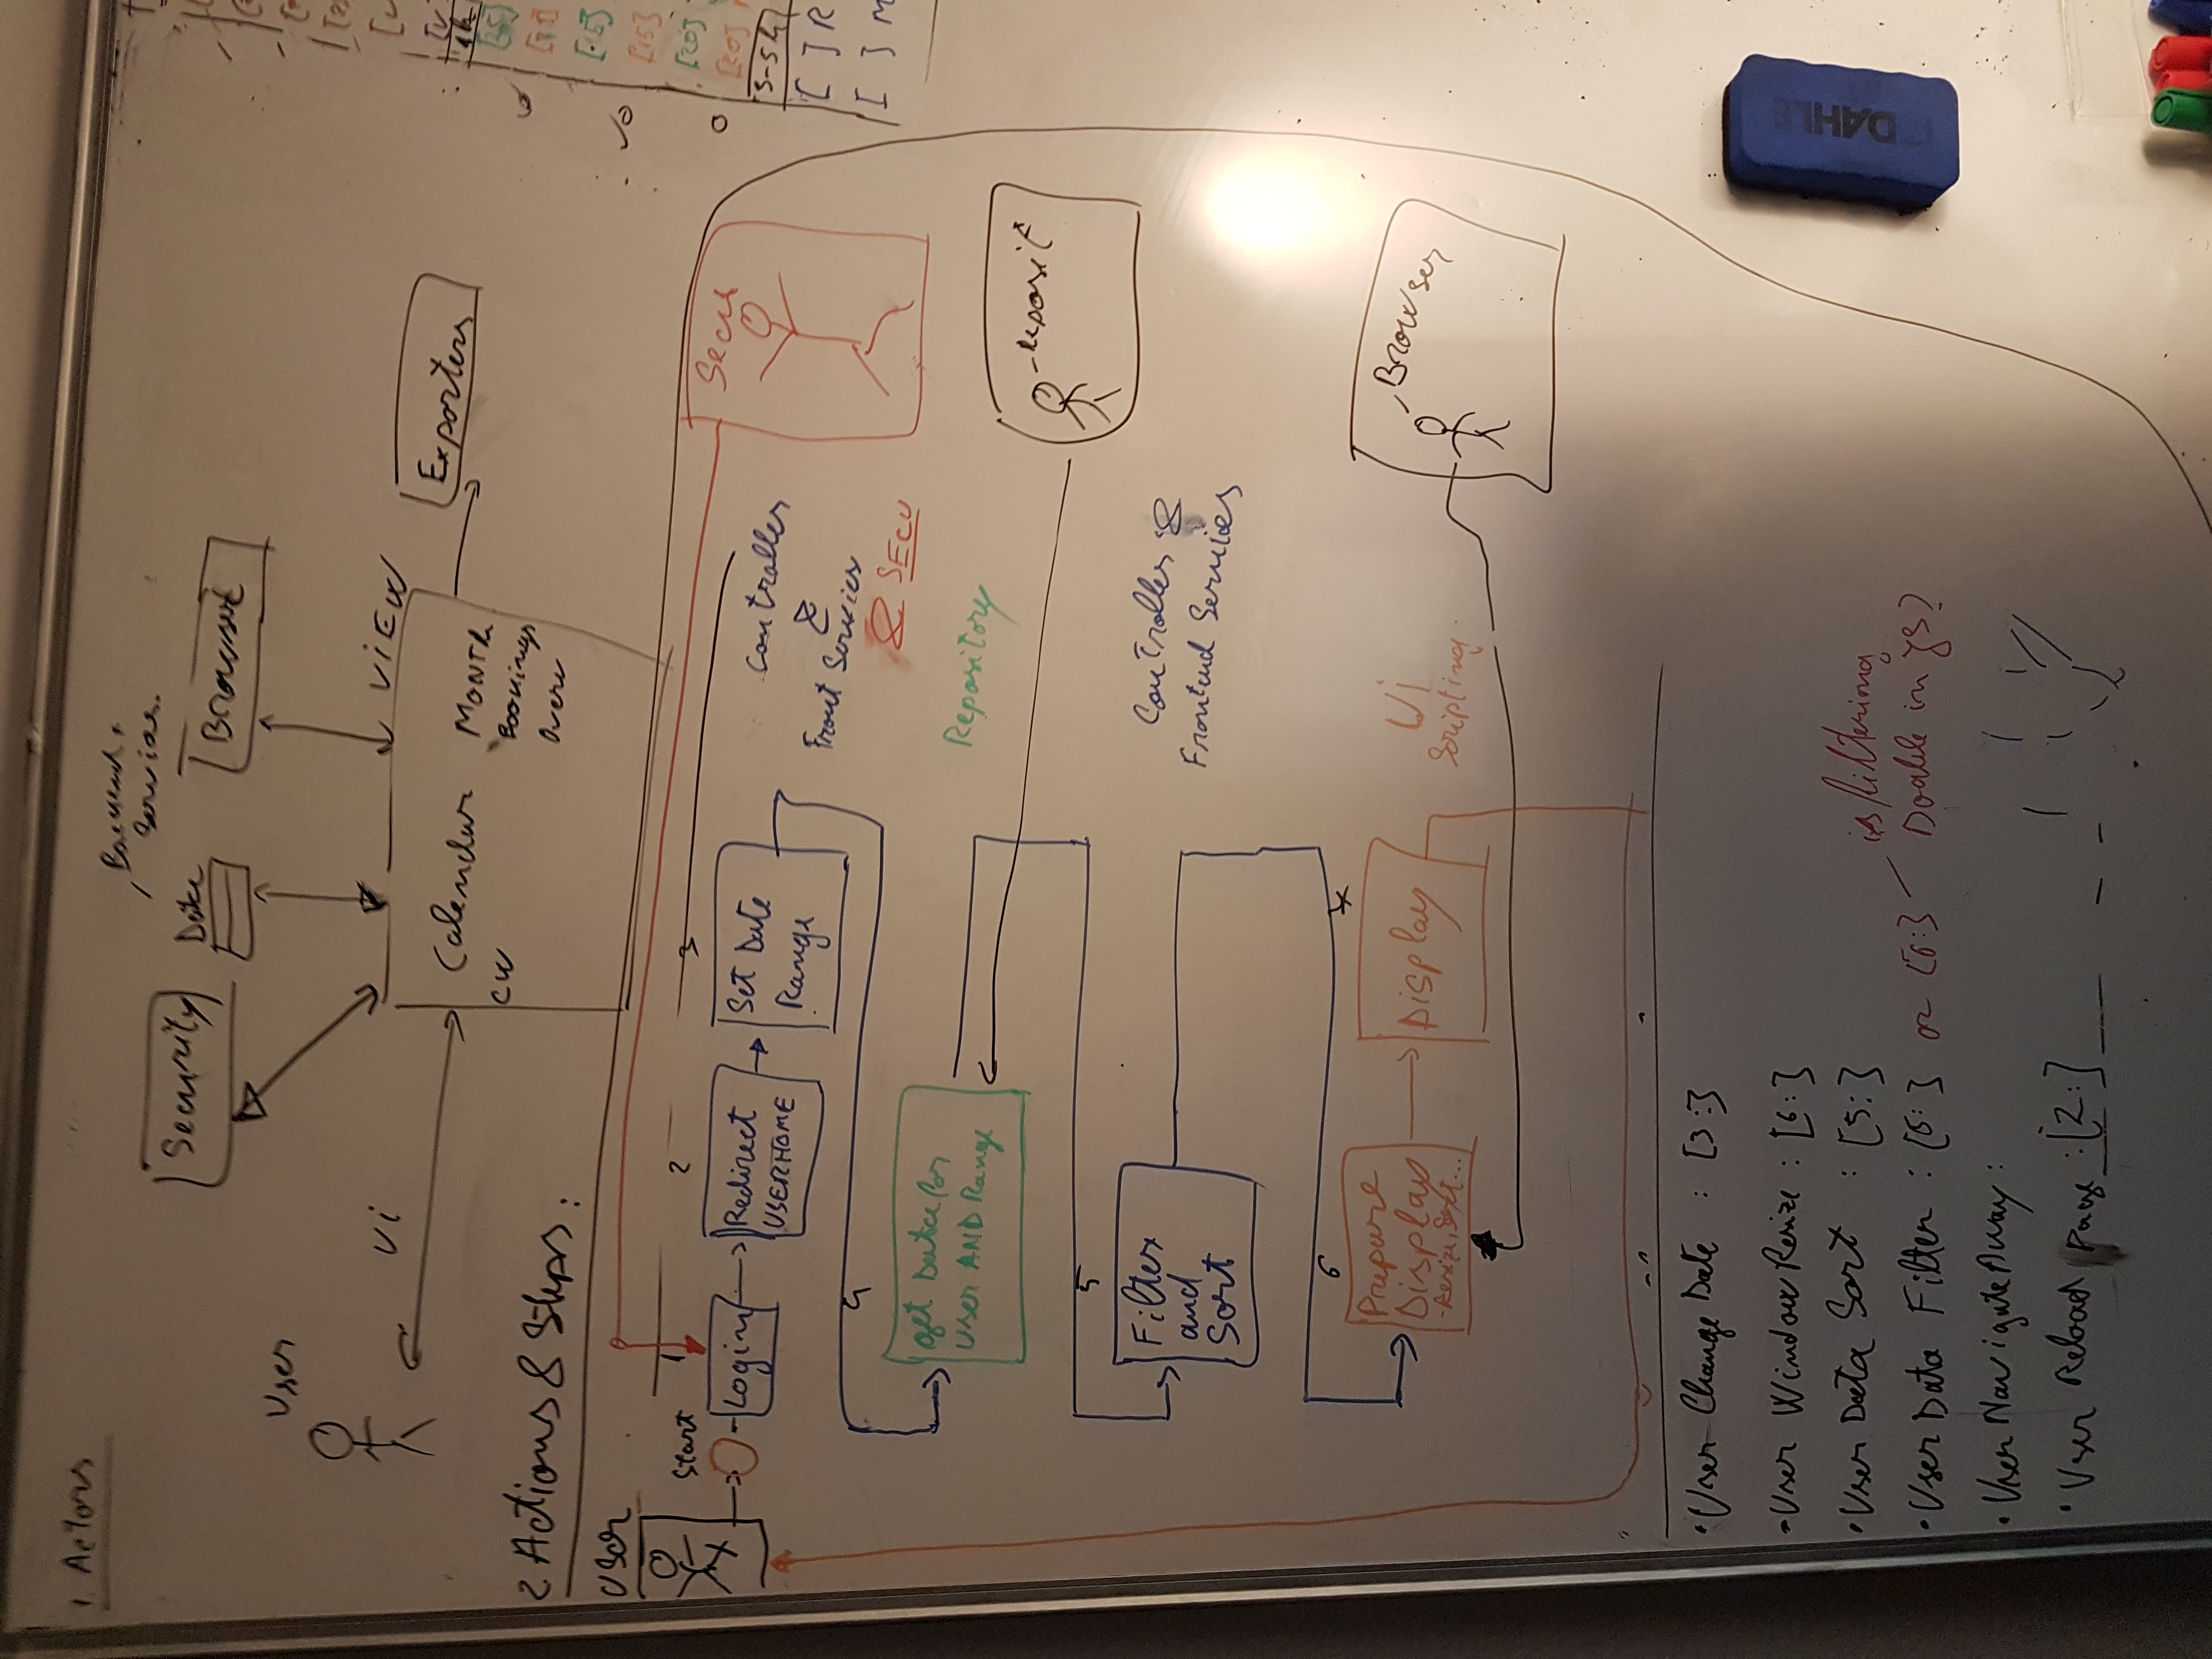 1. Actors
Backend +
Services.
Security
Data
Browser
User
Ui
ViEW
Calendar
CW
MONTH
Bookings
Overv
Exporters
2 Actions & Steps:
USer
Start
1
2
3
Login
Redirect
USERHOME
Set Date
Range
Controller
&
Front Services
& SECU
Secu
4
get Data for
User AND Range
Repository
Reposit
5
Filter
and
Sort
Controller &
Frontend Services
6
Prepare
Display
-Resize, Sort...
Display
Ui
Scripting
Browser
• User Change Date : [3:]
• User Window Resize : [6:]
• User Data Sort : [5:]
• User Data Filter : [5:] or [6:]
is filtering
Doable in JS?
• User Navigate Away :
• User Reload Page : [2:]
[15]
[15]
[20]
[20]
3-5h
[ ] R
[ ] M
DAHLE